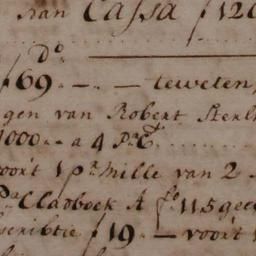 aan Cassa ƒ 120
Do.
ƒ 69 .-. - teweten,
gen van Robert Sterl
1000.- a 4 P.r Ct.
voor't 1 p.r mille van 2
P.r Cladboek A fo. 115 gee
scribtie ƒ 19 .- voor't